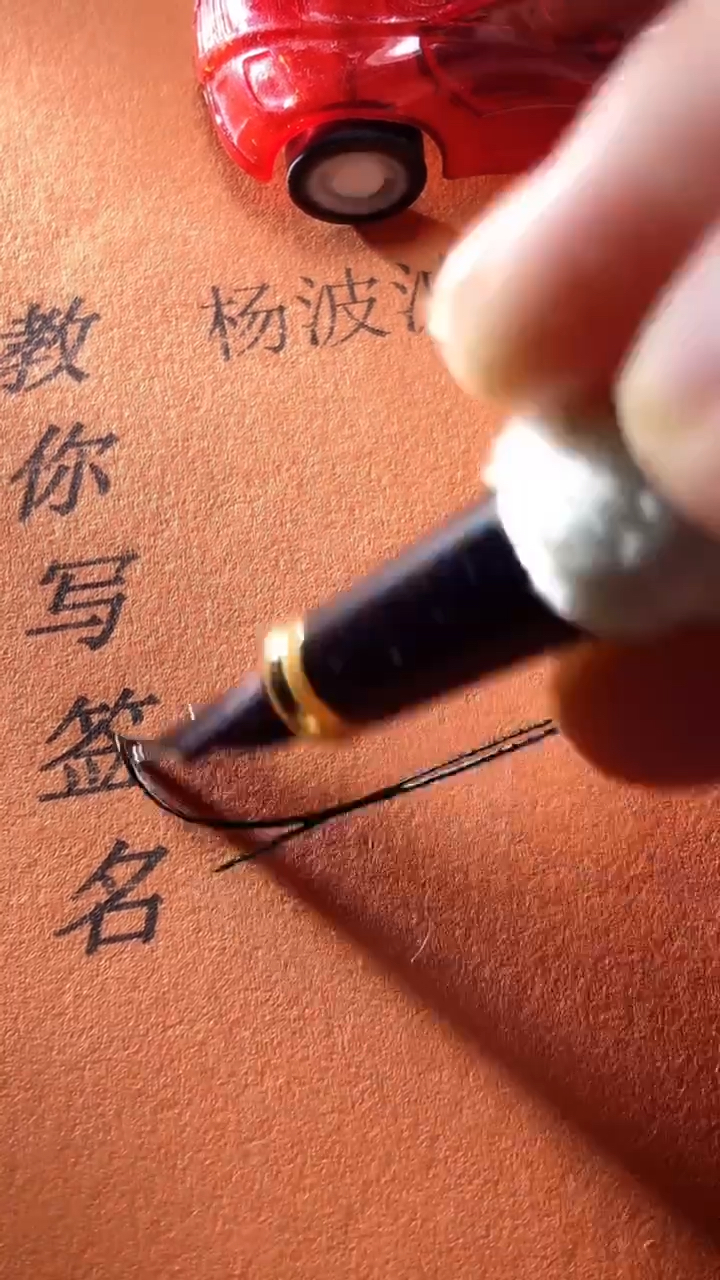 教你写签名
杨波